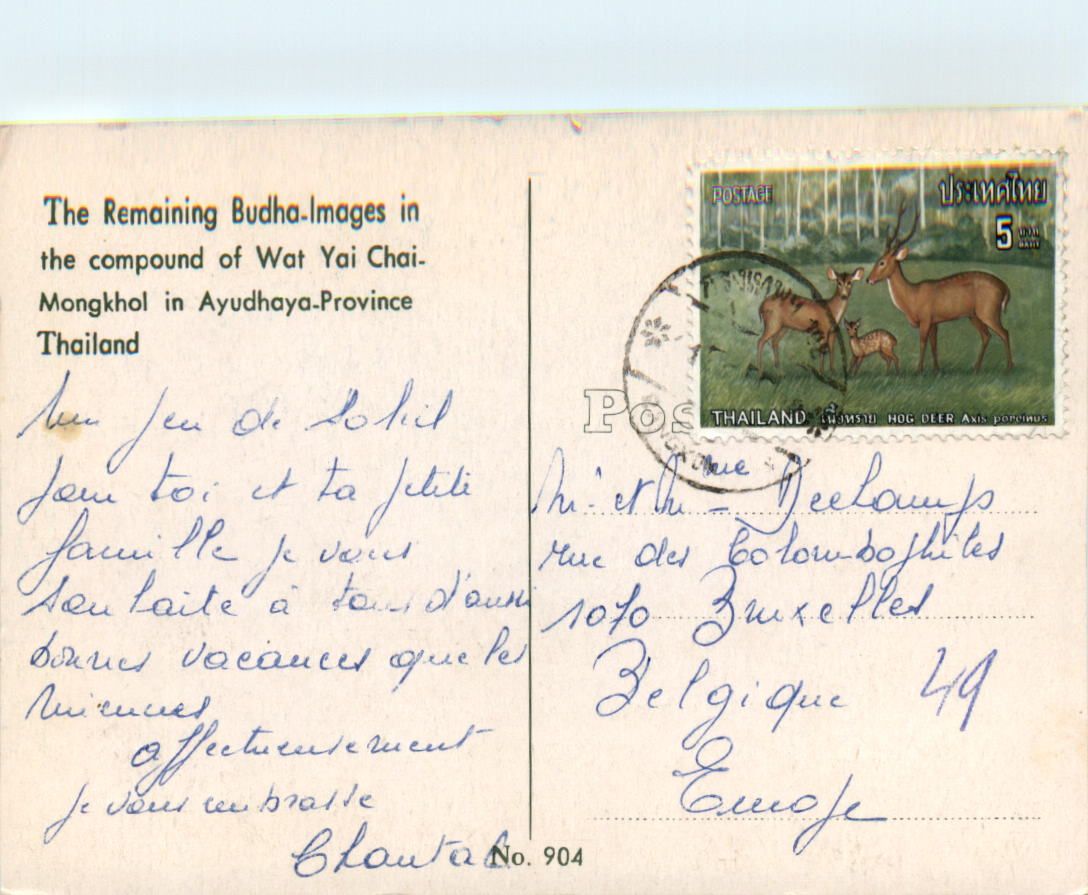 The Remaining Budha-Images in
the compound of Wat Yai Chai-
Mongkhol in Ayudhaya-Province
Thailand
Un peu de soleil
pour toi et ta petite
famille je vous
souhaite à tous d'aussi
bonnes vacances que les
miennes
affectueusement
je vous embrasse
Chantal
No. 904
POSTAGE
ประเทศไทย
5 บาท
BAHT
THAILAND เนื้อทราย HOG DEER Axis porcinus
Pos
Mr et Mme Deelamps
rue des Colombophiles
1070 Bruxelles
Belgique 49
Europe